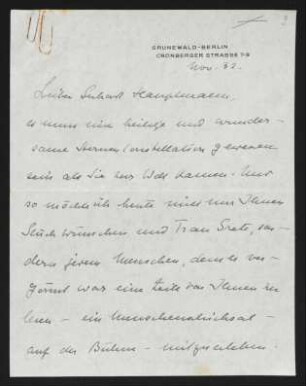 GRUNEWALD-BERLIN
CRONBERGER STRASSE 7-9
Nov. 32.
Lieber Gerhart Hauptmann,
es muss eine heilige und wunder-
same Sternenconstellation gewesen
sein als Sie zur Welt kamen. Und
so möchte ich heute nicht nur Ihnen
Glück wünschen und Frau Grete, son-
dern jedem Menschen, dem es ver-
gönnt war eine Seite von Ihnen zu
lesen – ein Menschenschicksal –
auf der Bühne – mitzuerleben.